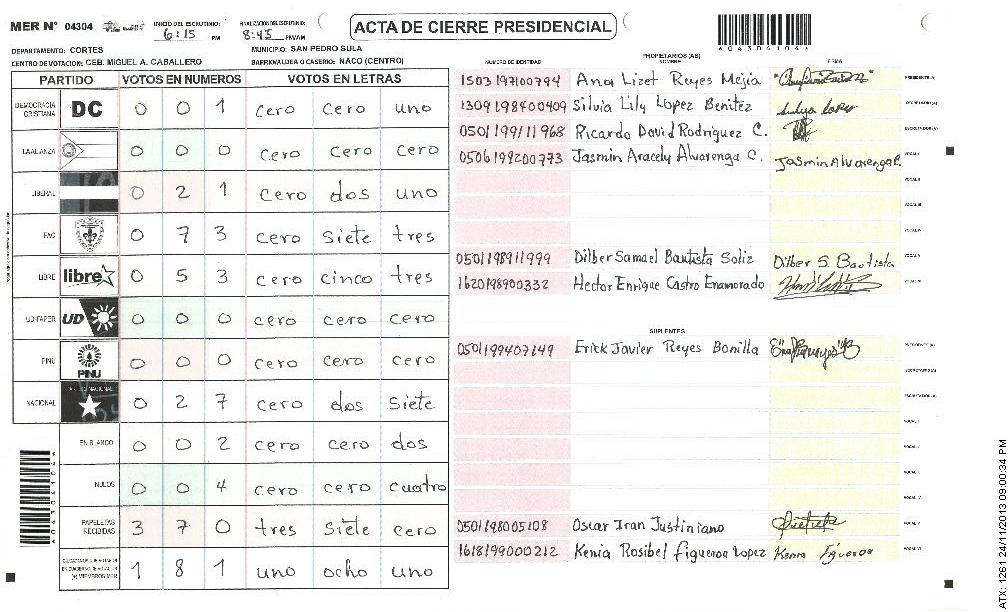 MER N° 04304
INICIO DEL ESCRUTINIO: 6:15 PM
FINALIZACION DEL ESCRUTINIO: 8:45 PM/AM
ACTA DE CIERRE PRESIDENCIAL
A04304104
DEPARTAMENTO: CORTES
MUNICIPIO: SAN PEDRO SULA
CENTRO DE VOTACION: CEB. MIGUEL A. CABALLERO
BARRIO/ALDEA O CASERIO: NACO (CENTRO)
PARTIDO VOTOS EN NUMEROS VOTOS EN LETRAS
DEMOCRACIA CRISTIANA DC 0 0 1 cero cero uno
LA ALIANZA 0 0 0 cero cero cero
LIBERAL 0 2 1 cero dos uno
PAC 0 7 3 cero siete tres
LIBRE libre 0 5 3 cero cinco tres
UD-FAPER UD 0 0 0 cero cero cero
PINU PINU 0 0 0 cero cero cero
NACIONAL 0 2 7 cero dos siete
EN BLANCO 0 0 2 cero cero dos
NULOS 0 0 4 cero cero cuatro
PAPELETAS RECIBIDAS 3 7 0 tres siete cero
1 8 1 uno ocho uno
NUMERO DE IDENTIDAD PROPIETARIOS (AS) NOMBRE FIRMA
1503197100794 Ana Lizet Reyes Mejia PRESIDENTE(A)
1309198400409 Silvia Lily Lopez Benitez SECRETARIO(A)
0501199111968 Ricardo David Rodriguez C. ESCRUTADOR(A)
0506199200773 Jasmin Aracely Alvarenga C. Jasmin Alvarenga C. VOCAL I
VOCAL II
VOCAL III
VOCAL IV
0501198911999 Dilber Samael Bautista Soliz Dilber S Bautista VOCAL V
1620198900332 Hector Enrique Castro Enamorado VOCAL VI
SUPLENTES
0501199407149 Erick Javier Reyes Bonilla PRESIDENTE(A)
SECRETARIO(A)
ESCRUTADOR(A)
VOCAL I
VOCAL II
VOCAL III
VOCAL IV
0501198005108 Oscar Iran Justiniano VOCAL V
1618199000212 Kenia Rosibel Figueroa Lopez Kenia Figueroa VOCAL VI
ATX: 1261 24/11/2013 09:00:34 PM